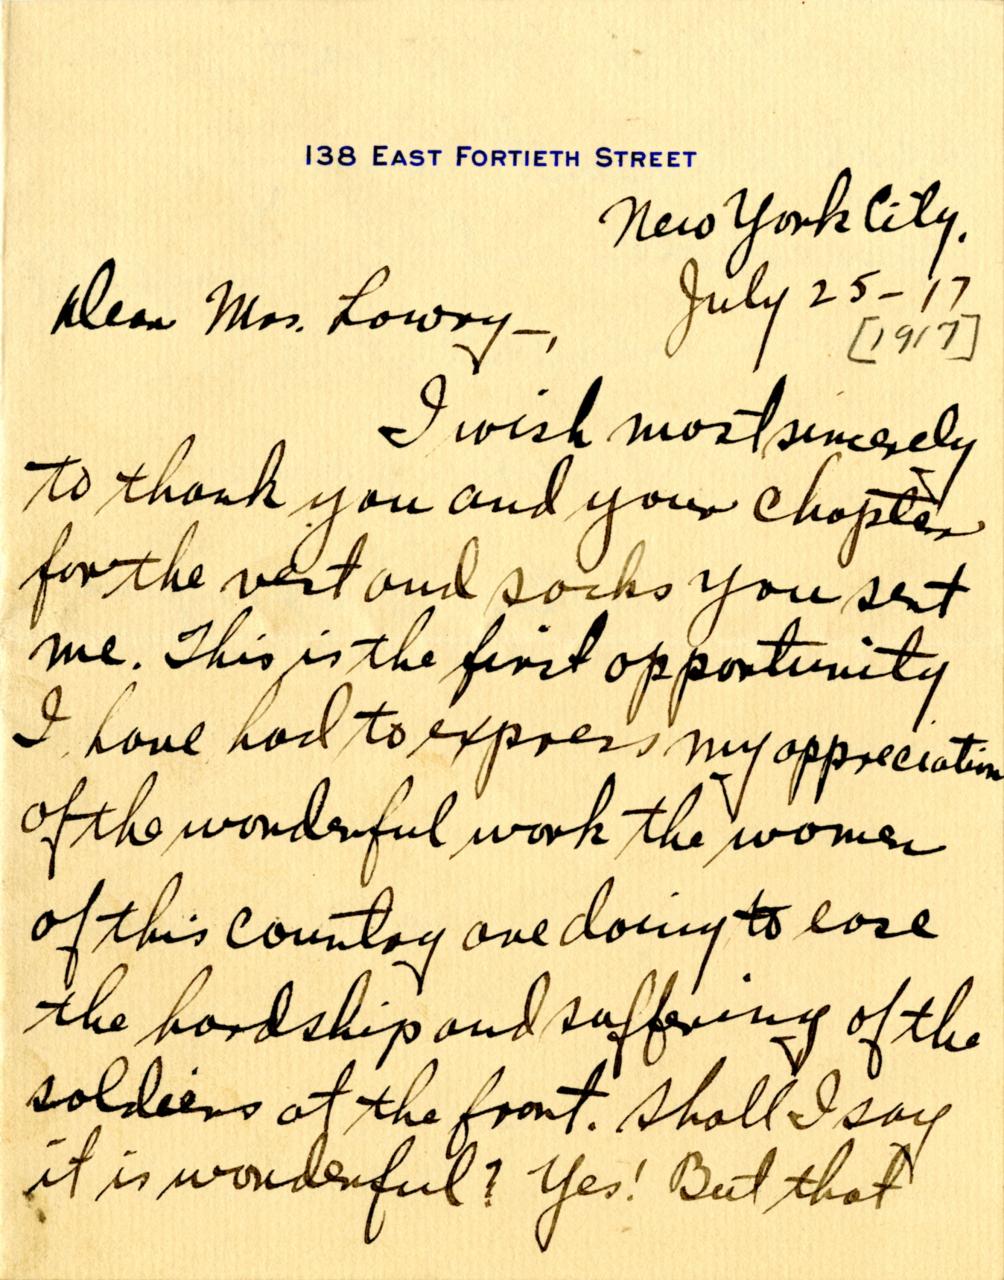 138 EAST FORTIETH STREET
New York City.
July 25-17
[1917]
Dear Mrs. Lowry-,
I wish most sincerely
to thank you and your chapter
for the vest and socks you sent
me. This is the first opportunity
I have had to express my appreciation
of the wonderful work the women
of this country are doing to ease
the hardship and suffering of the
soldiers at the front. Shall I say
it is wonderful? Yes! But that